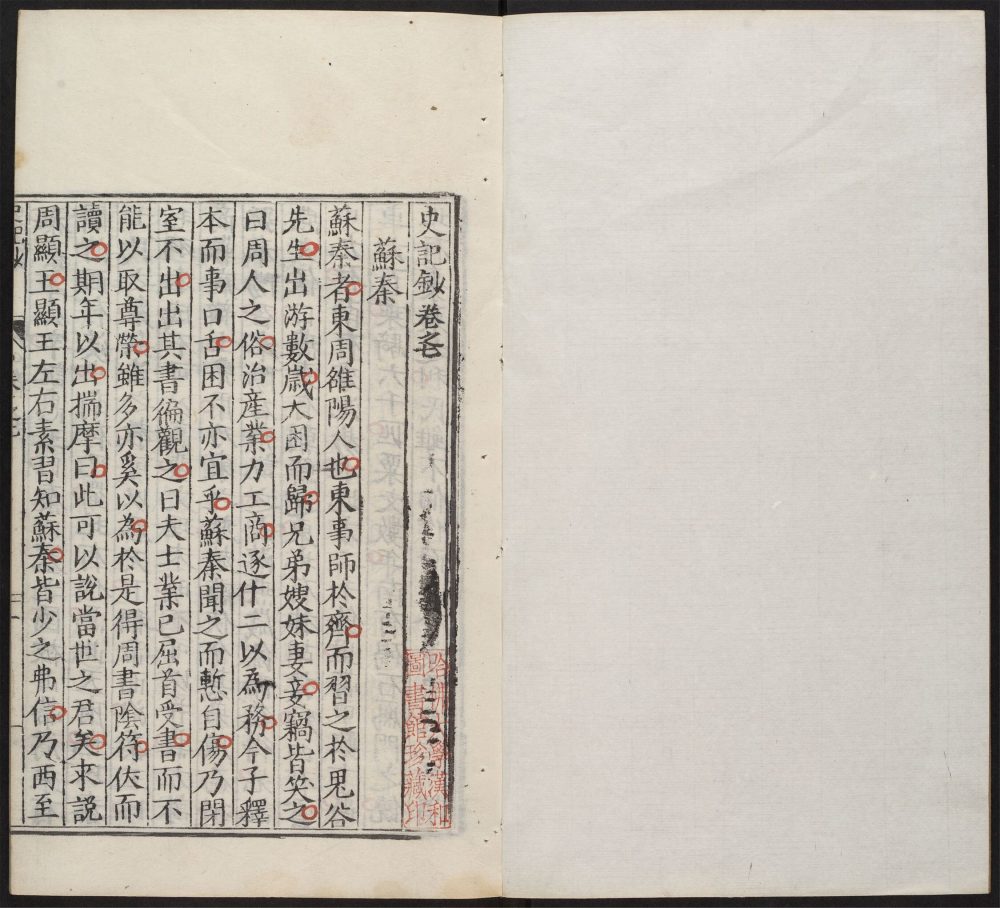 史記鈔卷之七
蘇秦
蘇秦者東周雒陽人也東事師於齊而習之於鬼谷
先生出游數歲大困而歸兄弟嫂妹妻妾竊皆笑之
曰周人之俗治產業力工商逐什二以為務今子釋
本而事口舌困不亦宜乎蘇秦聞之而慙自傷乃閉
室不出出其書徧觀之曰夫士業已屈首受書而不
能以取尊榮雖多亦奚以為於是得周書陰符伏而
讀之期年以出揣摩曰此可以說當世之君矣求說
周顯王顯王左右素習知蘇秦皆少之弗信乃西至
哈佛大學漢和
圖書館珍藏印